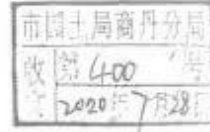 市国土局商丹分局
收 第400号
文 2020年7月28日